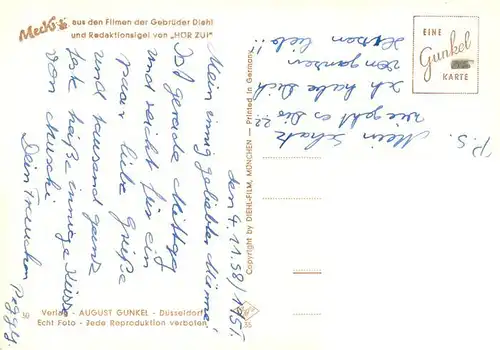 Mecki aus den Filmen der Gebrüder Diehl
und Redaktionsigel von „HÖR ZU!"
den 4.11.58/1951.
Mein innig geliebter Männe!
Ist gerade Mittag
und reicht für ein
paar liebe Grüße
und tausend ganz
feste heiße innige Küsse
von
Dein Frauchen Peggy.
P.S.
Mein Schatz
wie geht es Dir ??
ich habe Dich
von ganzen
Herzen lieb!!
EINE
Gunkel
KARTE
Copyright by DIEHL-FILM, MÜNCHEN — Printed in Germany
50
35
Verlag - AUGUST GUNKEL - Düsseldorf
Echt Foto - Jede Reproduktion verboten